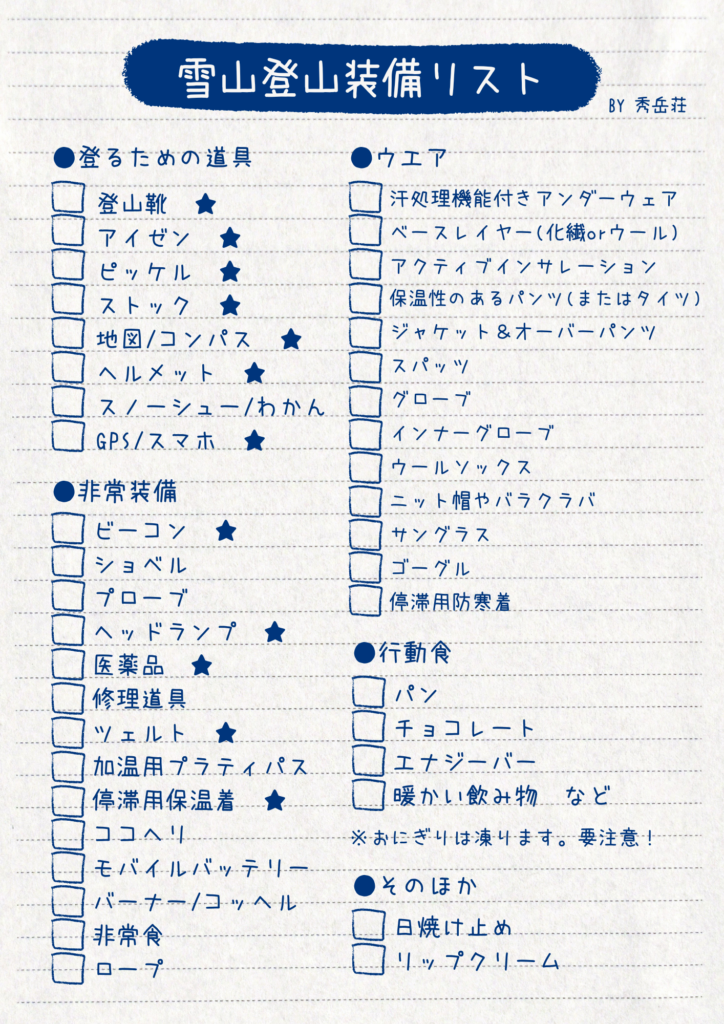 雪山登山装備リスト
BY 秀岳荘
●登るための道具
登山靴 ★
アイゼン ★
ピッケル ★
ストック ★
地図/コンパス ★
ヘルメット ★
スノーシュー/わかん
GPS/スマホ ★
●非常装備
ビーコン ★
ショベル
プローブ
ヘッドランプ ★
医薬品 ★
修理道具
ツェルト ★
加温用プラティパス
停滞用保温着 ★
ココヘリ
モバイルバッテリー
バーナー/コッヘル
非常食
ロープ
●ウエア
汗処理機能付きアンダーウェア
ベースレイヤー(化繊orウール)
アクティブインサレーション
保温性のあるパンツ(またはタイツ)
ジャケット&オーバーパンツ
スパッツ
グローブ
インナーグローブ
ウールソックス
ニット帽やバラクラバ
サングラス
ゴーグル
停滞用防寒着
●行動食
パン
チョコレート
エナジーバー
暖かい飲み物 など
※おにぎりは凍ります。要注意!
●そのほか
日焼け止め
リップクリーム